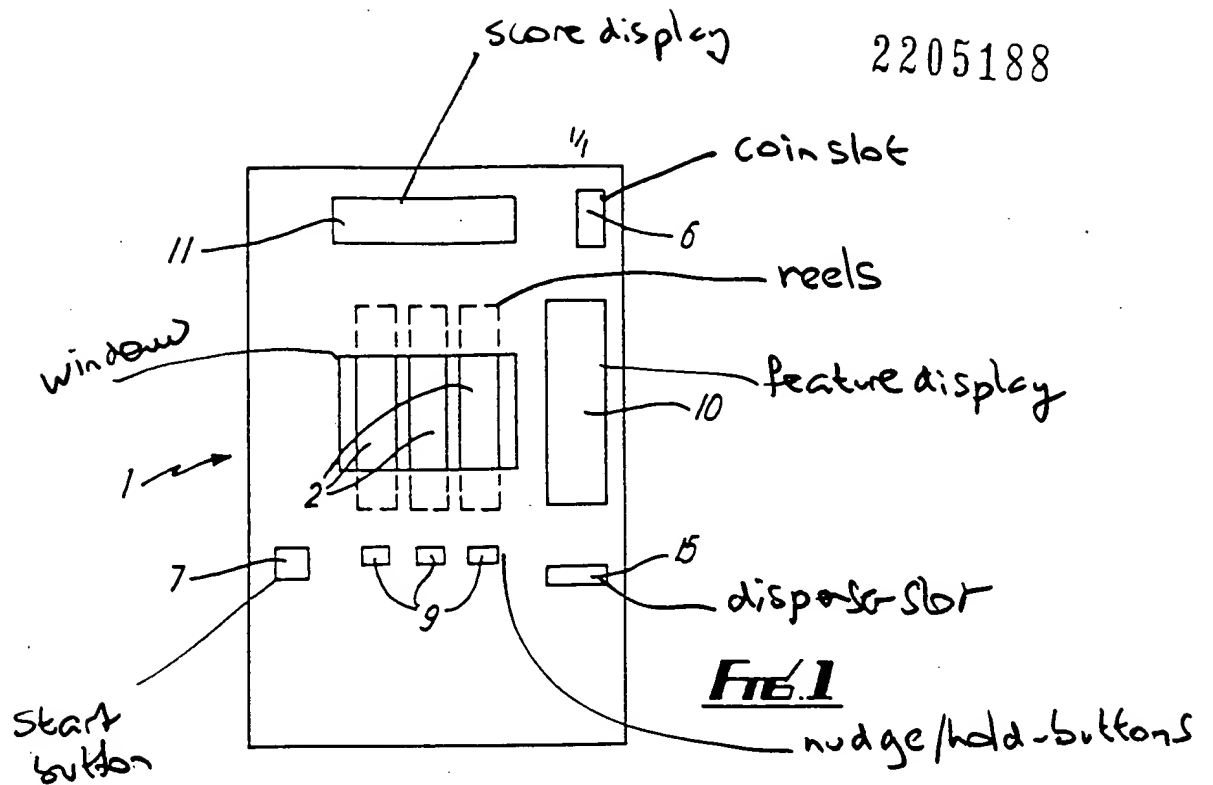 score display
2205188
1/1
coin slot
11
6
reels
window
feature display
10
1
2
7
9
15
dispense slot
FIG. 1
start
button
nudge/hold-buttons